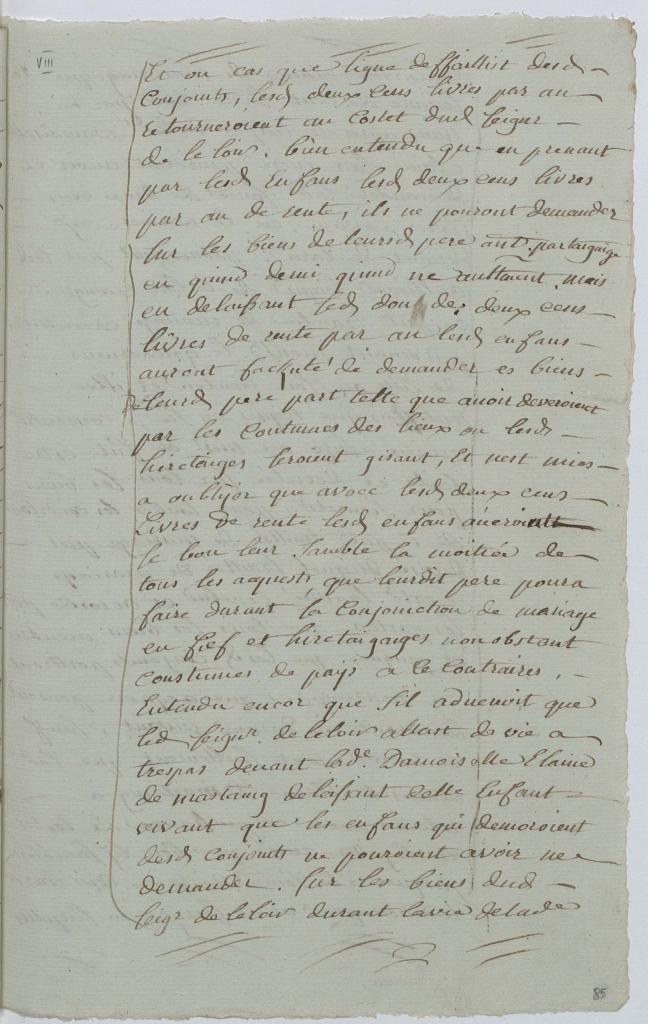 VIII
Et ou cas que ligne deffaillist desd
Conjoints, lesd deux cens livres par an
Retourneroient au Costet dud Seigr
de leloir. bien entendu que en prenant
par lesd Enfans lesd deux cens livres
par an de rente, ils ne pouront demander
sur les biens de leursd pere aut. partaigaige
en quind demi quind ne aultament mais
en delaissant lesd dont de deux cens
livres de rente par an lesd enfans
auront faculté de demander es biens
de leurd pere part telle que avoir deveroient
par les Coutumes des lieux ou lesd
hiretaiges seroient gisant, Et nest mies
a oublijer que avoec lesd deux cens
Livres de rente lesd enfans aueroient
se bon leur samble la moitiée de
tous les acquests que leurdit pere poura
faire durant la Conjonction de mariage
en fief et hiretaigaiges nonobstant
coustumes de pays a ce Contraires,
Entendu encor que sil advenoit que
led Seigr. de leloir allast de vie a
trespas devant lade. Damoiselle Elaine
de mastaing delaissant delle Enfant
vivant que les enfans qui demoroient
desd conjoints ne pouroient avoir ne
demander. sur les biens dud
seigr de leloir durant la vie de lade
85